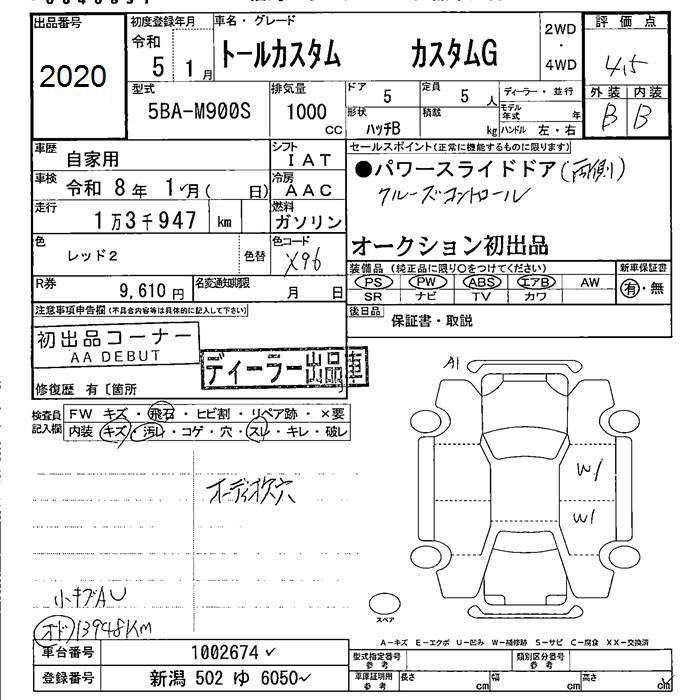 出品番号
2020
初度登録年月
令和
5 1 月
車名・グレード
トールカスタム カスタムG
2WD
・
4WD
評価点
4.5
外装 内装
B B
型式
5BA-M900S
排気量
1000
cc
ドア
5
定員
5 人
ディーラー・並行
モデル
年式 年
形状
ハッチB
積載
kg
ハンドル 左・右
車歴
自家用
シフト
IAT
セールスポイント(正常に機能するものに限ります)
●パワースライドドア(両側)
クルーズコントロール
オークション初出品
車検
令和 8年 1月( 日)
冷房
AAC
走行
1万3千947 km
燃料
ガソリン
色
レッド2
色替
色コード
X96
装備品(純正品に限り○をつけてください)
PS PW ABS エアB AW
SR ナビ TV カワ
新車保証書
有・無
R券
9,610 円
名変通知期限
月 日
後日品
保証書・取説
注意事項申告欄(不具合内容等は具体的に記入して下さい)
初出品コーナー
AA DEBUT
ディーラー出品車
修復歴 有〔箇所
検査員
記入欄
FW キズ・飛石・ヒビ割・リペア跡・×要
内装 キズ・汚れ・コゲ・穴・スレ・キレ・破レ
A1
W1
W1
オーディオ次穴
小キズAU
オド 13948KM
スペア
A-キズ E-エクボ U-凹み W-補修跡 S-サビ C-腐食 XX-交換済
車台番号
1002674
型式指定番号
参考
類別区分番号
参考
登録番号
新潟 502 ゆ 6050
車庫証明用
参考
長さ
cm
幅
cm
高さ
cm